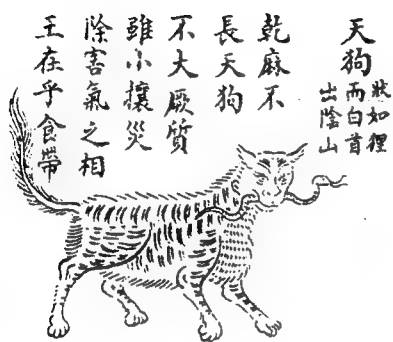 天狗
狀如狸
而白首
出陰山
乾麻不
長天狗
不大厥質
雖小攘災
除害氣之相
王在乎食帶